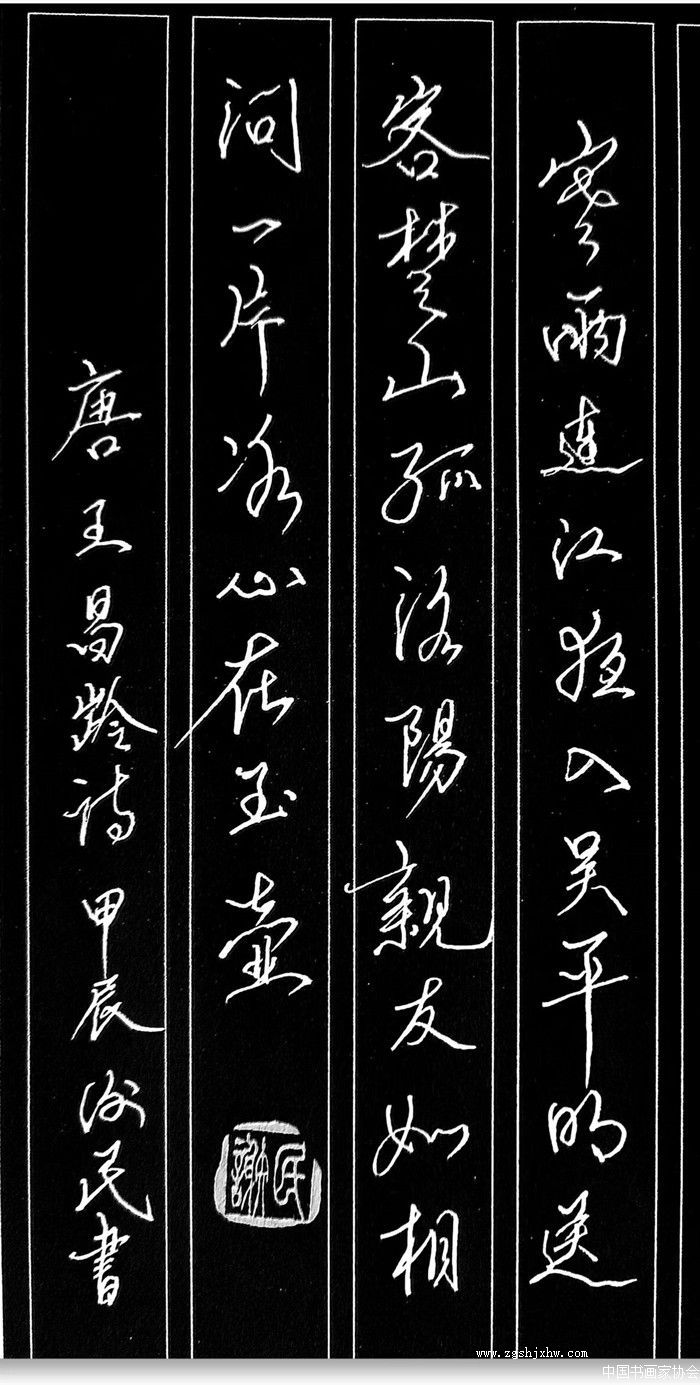 寒雨連江夜入吳平明送
客楚山孤洛陽親友如相
問一片冰心在玉壺
謝民
唐王昌齡詩甲辰謝民書
www.zgshjxhw.com
中国书画家协会